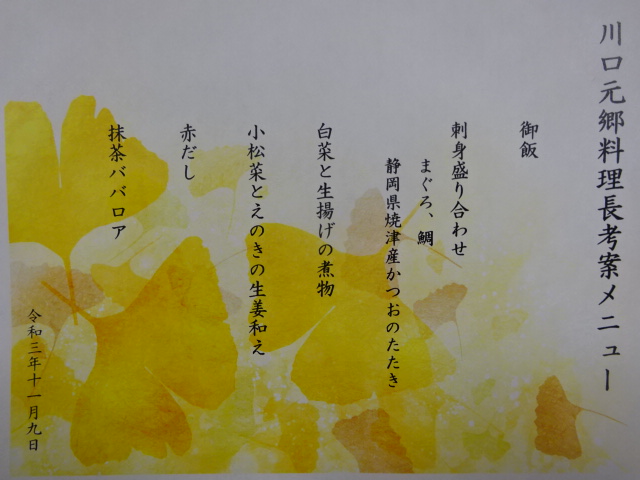 川口元郷料理長考案メニュー
御飯
刺身盛り合わせ
まぐろ、鯛
静岡県焼津産かつおのたたき
白菜と生揚げの煮物
小松菜とえのきの生姜和え
赤だし
抹茶ババロア
令和三年十一月九日